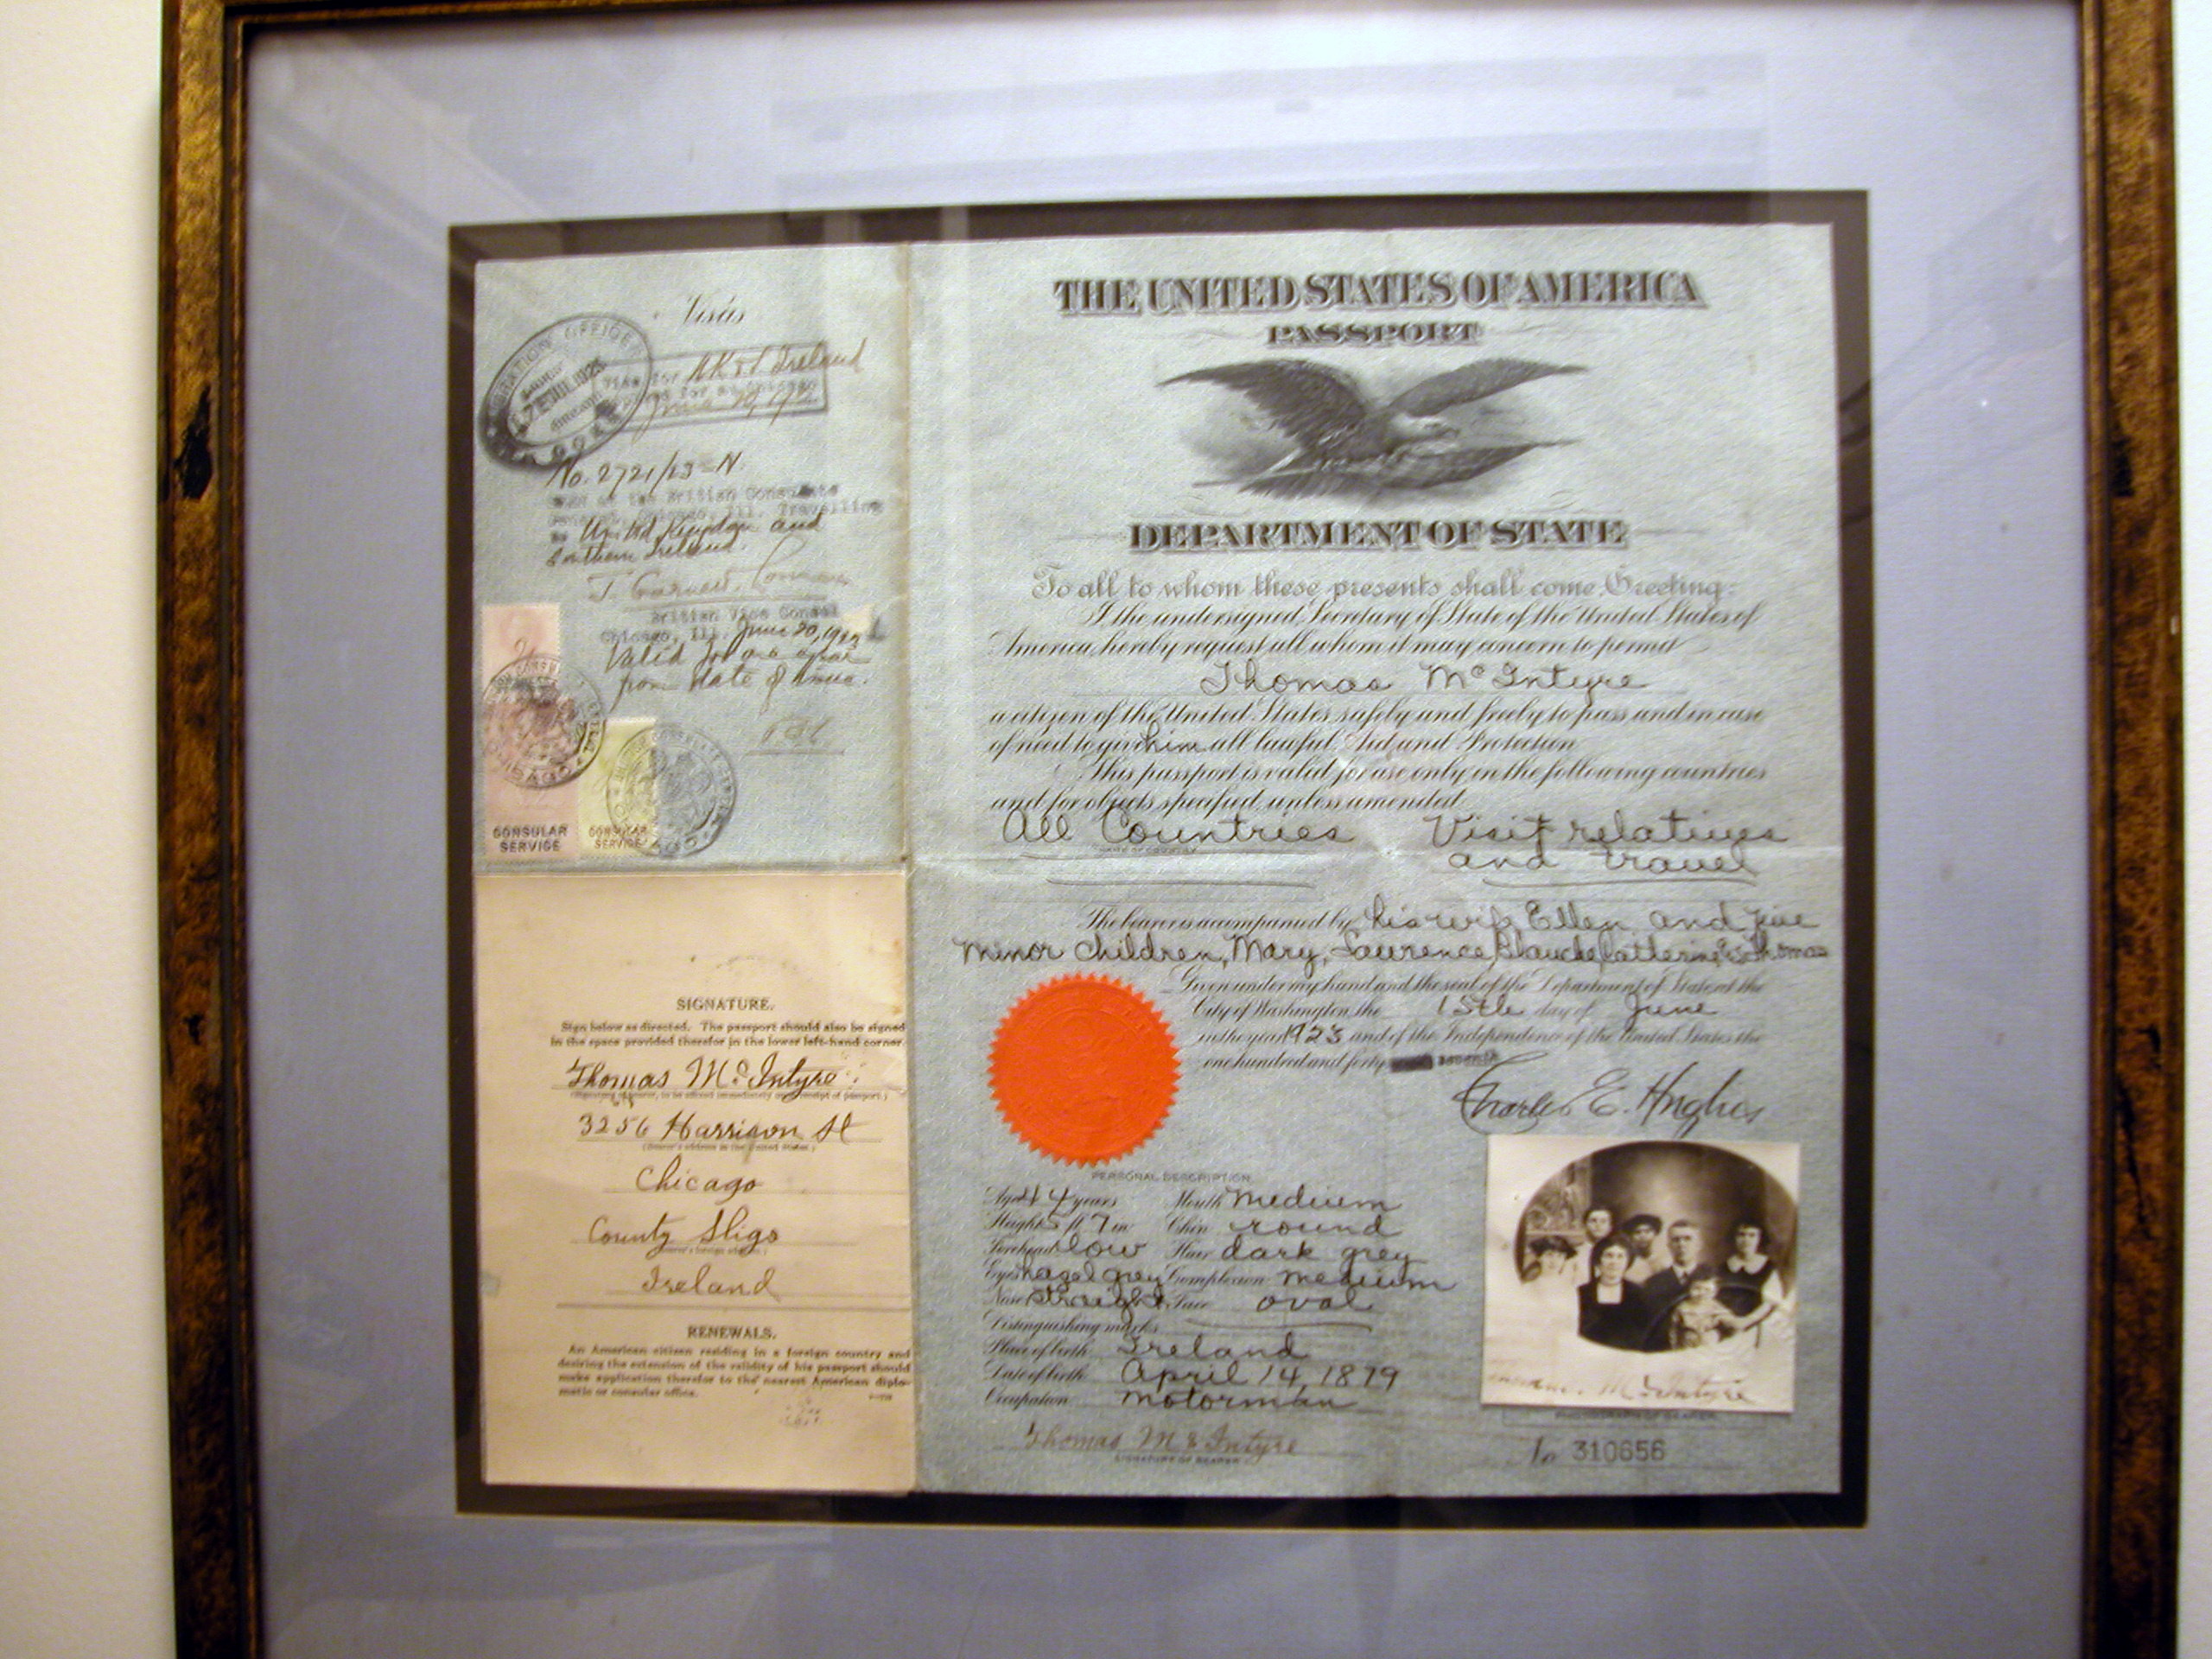 Visas
Visa for U.K. & I. Ireland
June 20, 192
No. 2721/23-N
Seen at the British Consulate
General, Chicago, Ill. Travelling
to United Kingdom and
Southern Ireland.
British Vice Consul
Chicago, Ill. June 20, 1923
Valid for one year
from date of
CONSULAR
SERVICE
CONSULAR
SERVICE
SIGNATURE.
Sign below as directed. The passport should also be signed
in the space provided therefor in the lower left-hand corner.
Thomas McIntyre
3256 Harrison St
(Bearer's address in the United States.)
Chicago
County Sligo
Ireland
RENEWALS.
An American citizen residing in a foreign country and
desiring the extension of the validity of his passport should
make application therefor to the nearest American diplo-
matic or consular office.
THE UNITED STATES OF AMERICA
PASSPORT
DEPARTMENT OF STATE
To all to whom these presents shall come, Greeting:
I the undersigned, Secretary of State of the United States of
America, hereby request all whom it may concern to permit
Thomas McIntyre
a citizen of the United States, safely and freely to pass and in case
of need to give him all lawful Aid and Protection
This passport is valid for use only in the following countries
and for objects specified, unless amended
All Countries Visit relatives
NAME OF COUNTRY
and travel
The bearer is accompanied by his wife Ellen and five
minor children, Mary, Laurence, Blanche, Catherine & Thomas
Given under my hand and the seal of the Department of State at the
City of Washington, the 15th day of June
in the year 1923 and of the Independence of the United States the
one hundred and forty seventh
Charles E. Hughes
PERSONAL DESCRIPTION
Age 44 years Mouth medium
Height 5 ft 7 in Chin round
Forehead low Hair dark grey
Eyes hazel grey Complexion medium
Nose straight Face oval
Distinguishing marks
Place of birth Ireland
Date of birth April 14, 1879
Occupation motorman
Thomas McIntyre
SIGNATURE OF BEARER
McIntyre
PHOTOGRAPH OF BEARER
No 310656